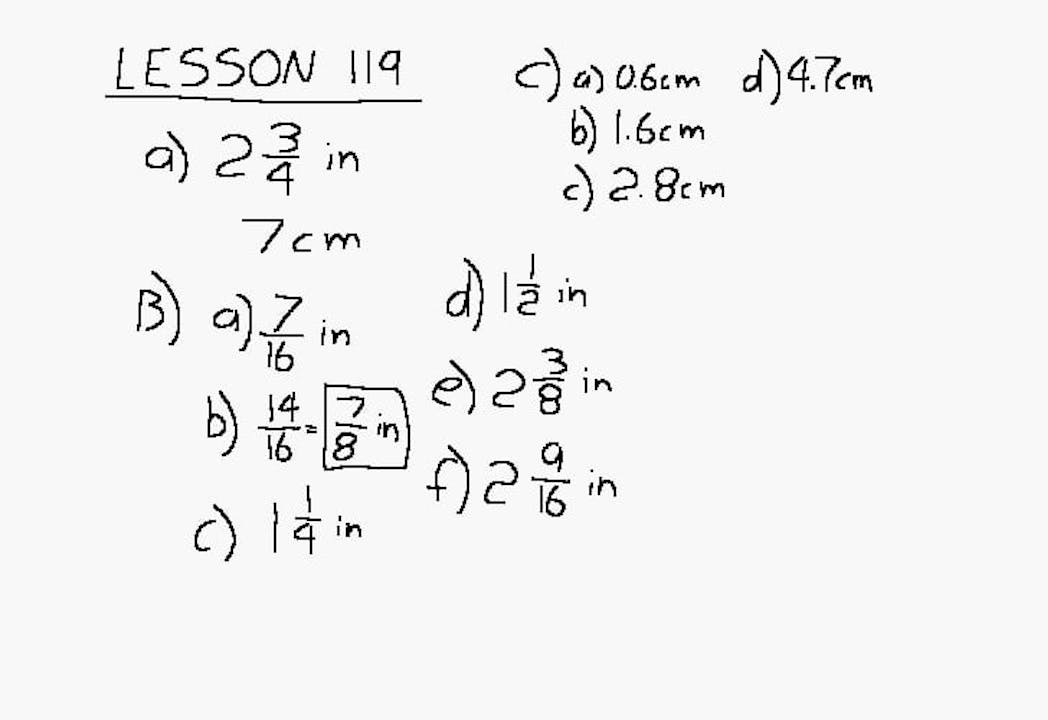 LESSON 119
a) 2 3/4 in
7cm
B) a) 7/16 in
b) 14/16 = 7/8 in
c) 1 1/4 in
d) 1 1/2 in
e) 2 3/8 in
f) 2 9/16 in
c) a) 0.6cm d) 4.7cm
b) 1.6cm
c) 2.8cm